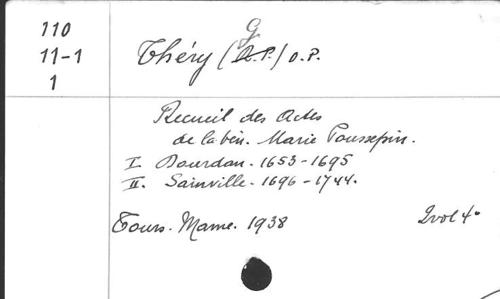 110
11-1
1
Théry (G.) O.P.
Recueil des Actes
de la bén. Marie Poussepin.
I Dourdan. 1653-1695
II. Sainville. 1696-1744.
Tours. Mame. 1938
2 vol 4°